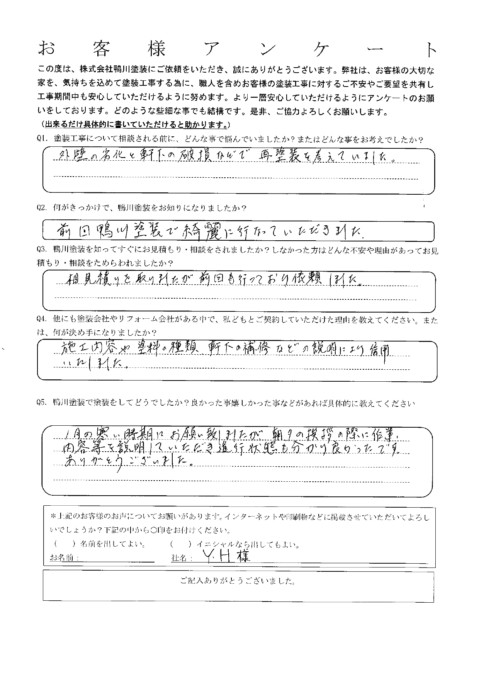 お客様アンケート
この度は、株式会社鴨川塗装にご依頼をいただき、誠にありがとうございます。弊社は、お客様の大切な
家を、気持ちを込めて塗装工事する為に、職人を含めお客様の塗装工事に対するご不安やご要望を共有し
工事期間中も安心していただけるように努めます。より一層安心していただけるようにアンケートのお願
いをしております。どのような些細な事でも結構です。是非、ご協力よろしくお願いします。
（出来るだけ具体的に書いていただけると助かります。）
Q1. 塗装工事について相談される前に、どんな事で悩んでいましたか？またはどんな事をお考えでしたか？
外壁の劣化と軒下の破損などで再塗装を考えていました。
Q2. 何がきっかけで、鴨川塗装をお知りになりましたか？
前回鴨川塗装で綺麗に行なっていただきました。
Q3. 鴨川塗装を知ってすぐにお見積もり・相談をされましたか？しなかった方はどんな不安や理由があってお見
積もり・相談をためらわれましたか？
相見積りを取りましたが前回も行っており依頼しました。
Q4. 他にも塗装会社やリフォーム会社がある中で、私どもとご契約していただけた理由を教えてください。また
は、何が決め手になりましたか？
施工内容や塗料の種類、軒下の補修などの説明により信用
いたしました。
Q5. 鴨川塗装で塗装をしてどうでしたか？良かった事嬉しかった事などがあれば具体的に教えてください
1月の寒い時期にお願い致しましたが、朝夕の挨拶の際に作業
内容等を説明していただき進行状態も分かり良かったです。
ありがとうございました。
※上記のお客様のお声についてお願いがあります。インターネットや印刷物などに掲載させていただいてよろし
いでしょうか？下記の中から〇印をお付けください。
（　）名前を出してよい。　（　）イニシャルなら出してもよい。
お名前：　社名：Y.H様
ご記入ありがとうございました。